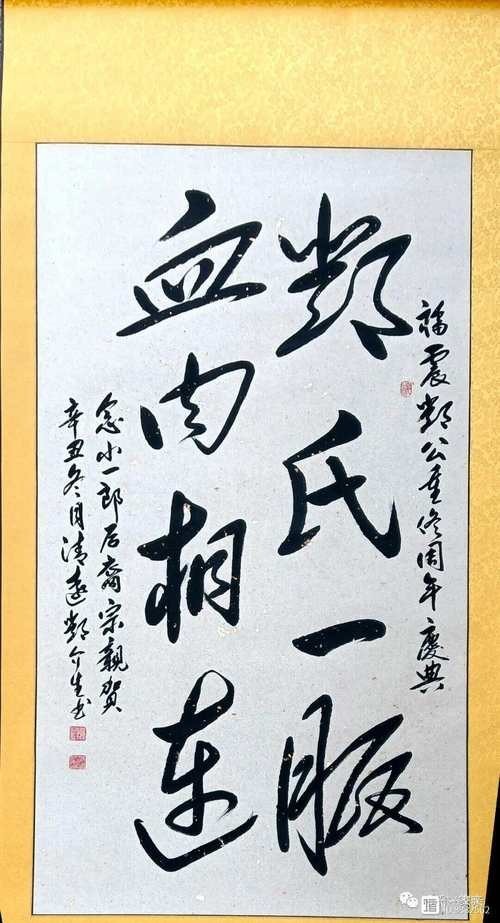 福震鄭公重修周年慶典
鄭氏一脈
血肉相連
念小一郎后裔宗親賀
辛丑冬月清遠鄭介生书